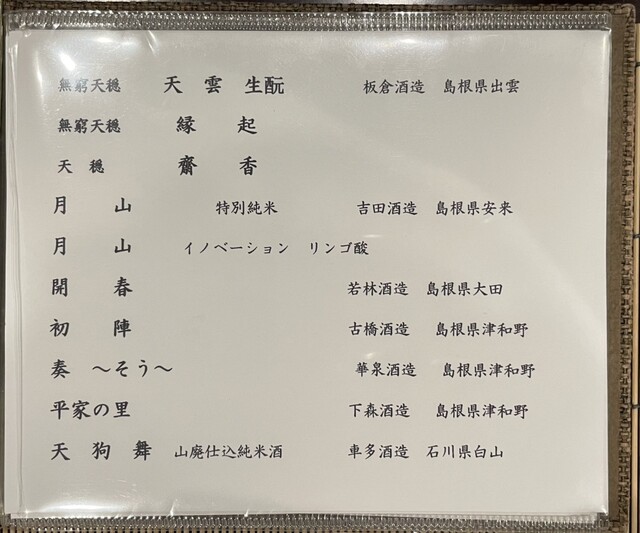 無窮天穏 天雲 生酛 板倉酒造 島根県出雲
無窮天穏 縁起
天穏 齋香
月山 特別純米 吉田酒造 島根県安来
月山 イノベーション リンゴ酸
開春 若林酒造 島根県大田
初陣 古橋酒造 島根県津和野
奏 〜そう〜 華泉酒造 島根県津和野
平家の里 下森酒造 島根県津和野
天狗舞 山廃仕込純米酒 車多酒造 石川県白山